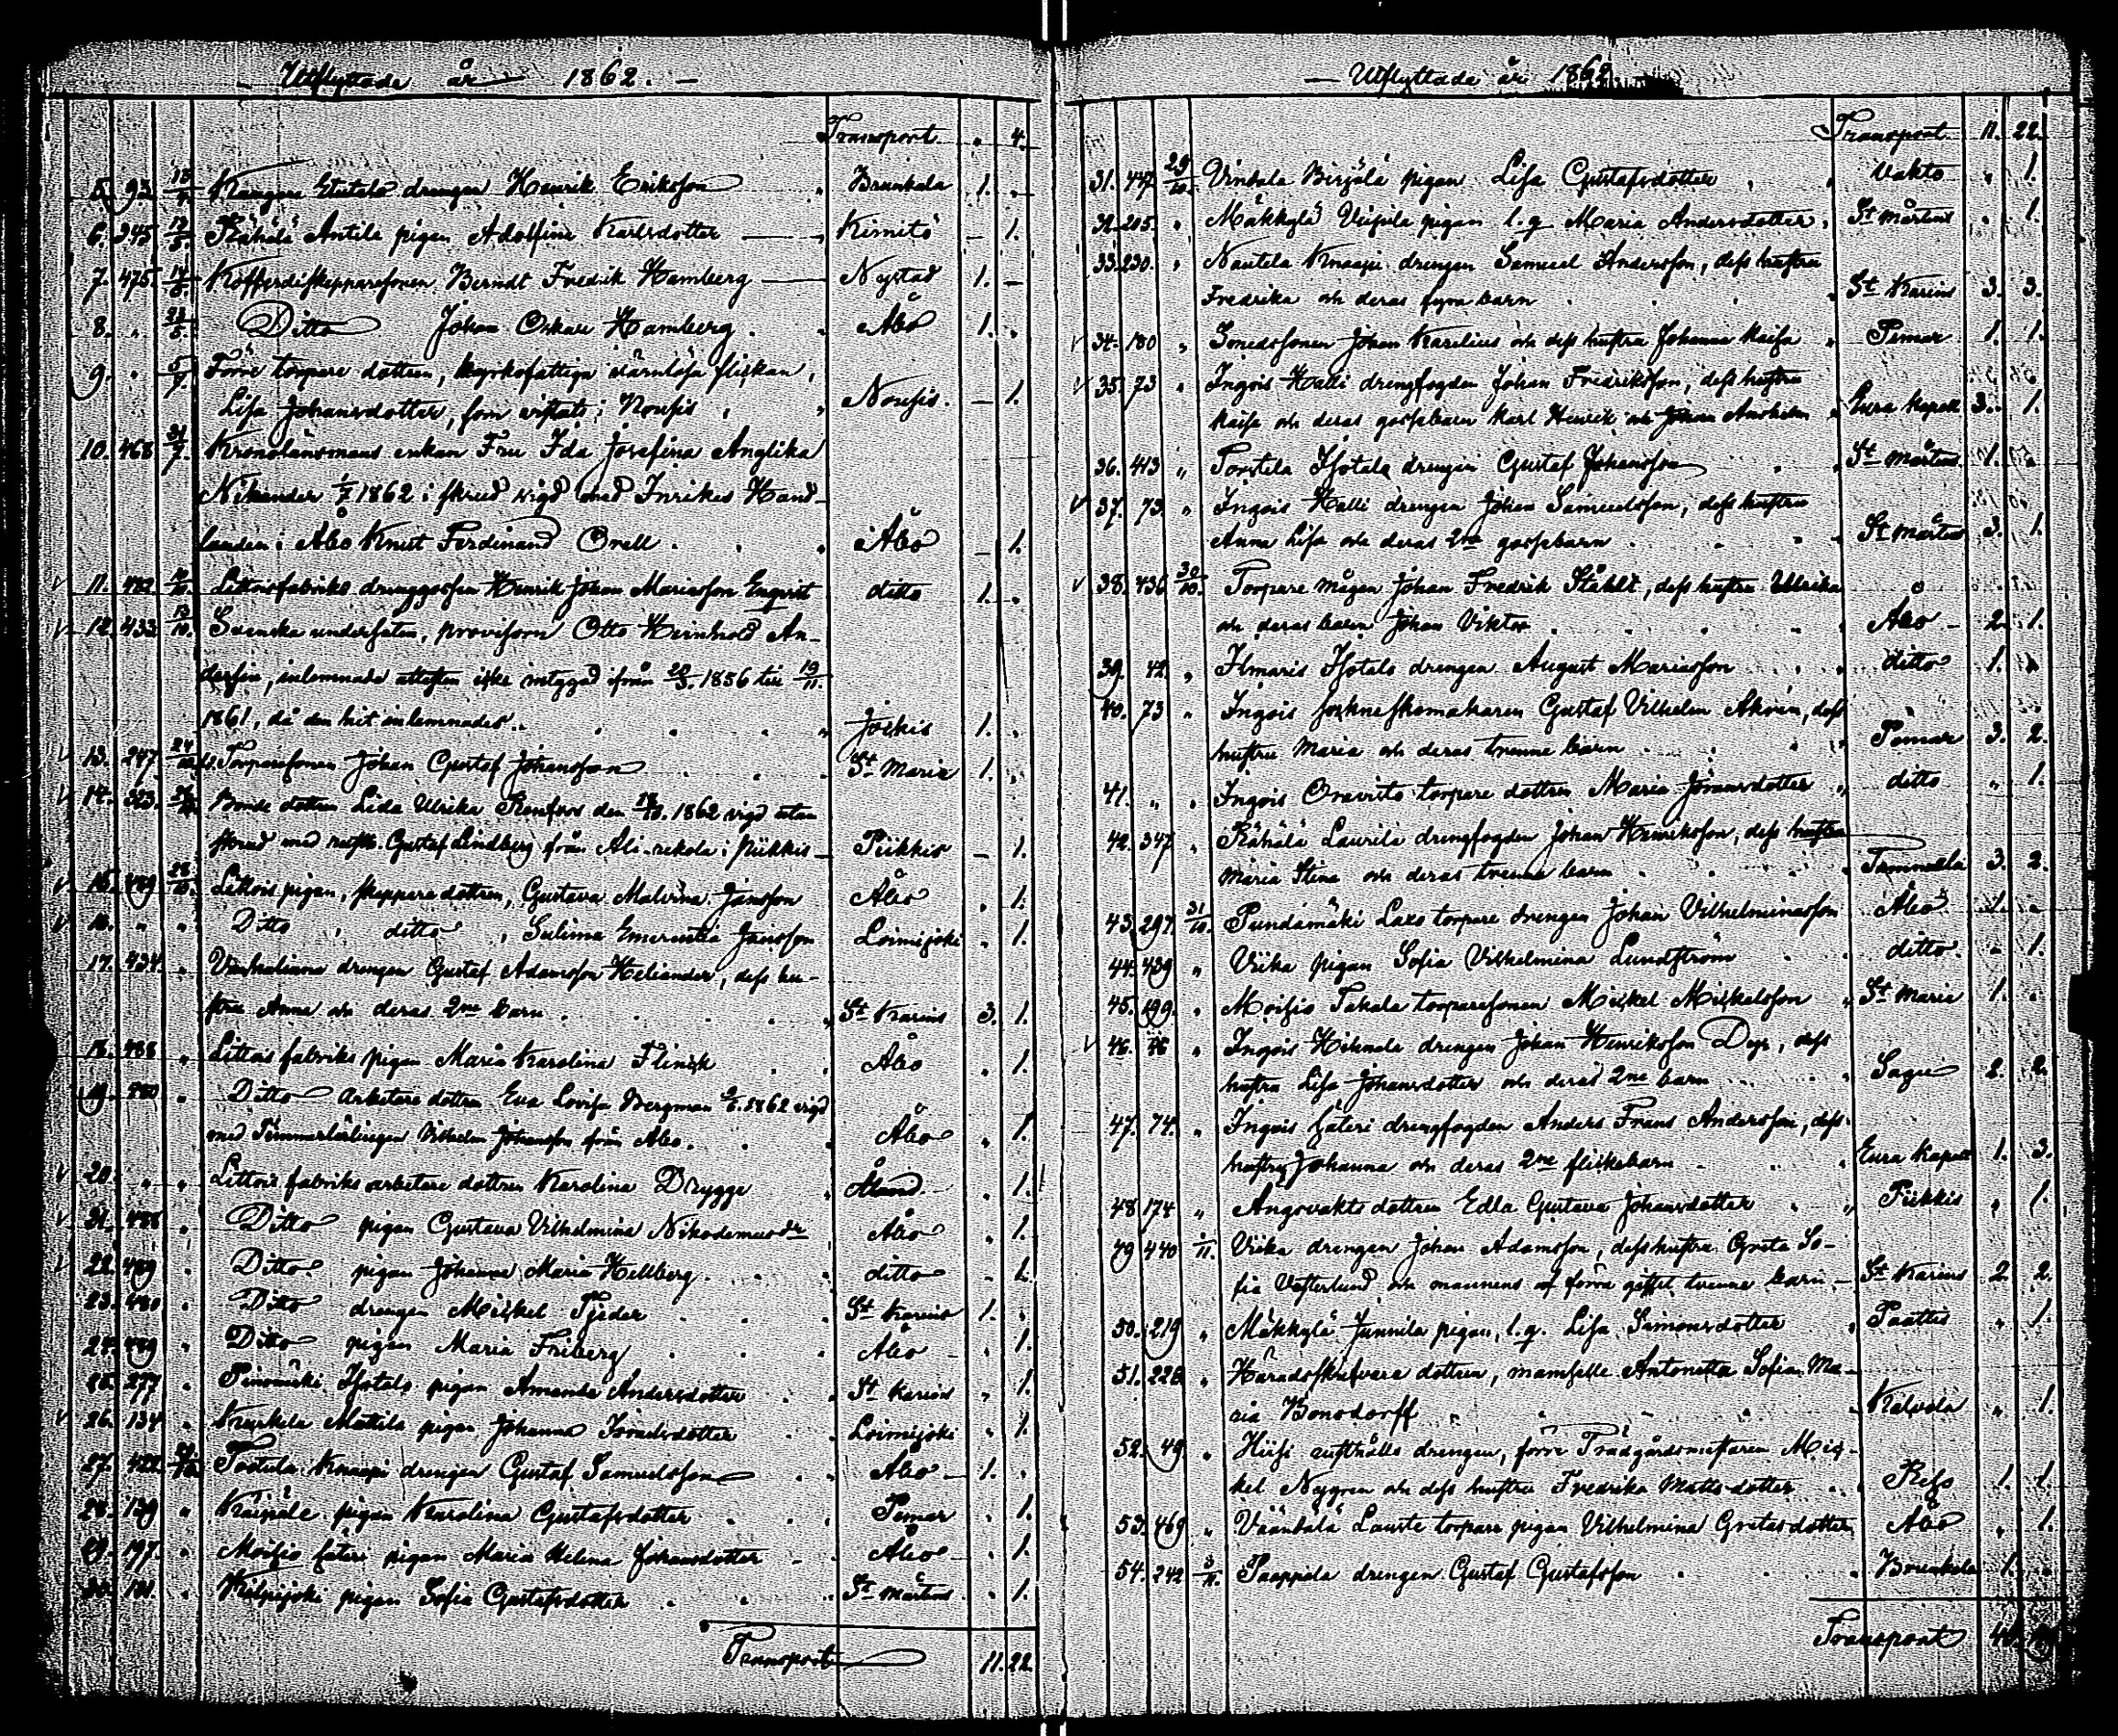 Utflyttade år 1862.
Transport " 4.
5. 93. drengen Henrik Eriksson Brunkala 1. "
6. 345 Rähälä Antila pigan Adolfina Karlsdotter Kimito – 1.
7. 475. Kofferdiskepparesonen Berndt Fredrik Hamberg Nystad 1. –
8. " Ditto Johan Oskar Hamberg Åbo 1. "
9. " Förre torpare dottren, kyrkofattiga wärnlösa flickan,
Lisa Johansdotter, som vistats i Nousis Nousis. – 1.
10. 468 31/7. Kronolänsmans enkan Fru Ida Josefina Anglika
Nikander 1/7 1862 i skrud vigd med Inrikes Hand-
landen i Åbo Knut Ferdinand Orell Åbo – 1.
11. 482 Littoisfabriks drenggossen Henrik Johan Mariasson Enqvist ditto 1. "
12. 433 Svenska undersåten, provisorn Otto Reinhold An-
dersin, inlemnade attesten icke intygad ifrån 1856 till 19/11.
1861, då den hit inlemnades. Jockis 1. "
13. 247. Torparesonen Johan Gustaf Johansson St Marie 1. "
14. 323. Bonde dottren Lida Ulrika Renfors den 1862 vigd utan
skrud med Gustaf Lindberg från i Piikkis – Piikkis – 1.
15. 489 28/10. Littois pigan, skeppare dottren, Gustava Malvina Jansson Åbo " 1.
16. " " Ditto ditto, Selima Emerentia Jansson Loimijoki " 1.
17. 434. " drengen Gustaf Adamsson Heliander, dess hu-
stru Anna och deras 2ne barn St Karins 3. 1.
18. 488 " Littois fabriks pigan Maria Karolina Flinck Åbo " 1.
19. 480 " Ditto arbetare dottren Eva Lovisa Bergman 1862 vigd
med Timmerlärlingen Vilhelm Johansson från Åbo. Åbo " 1.
20. " " Littois fabriks arbetare dottren Karolina Drygge Åland " 1.
21. 488 " Ditto pigan Gustava Vilhelmina Nikodemusdr Åbo " 1.
22. 489 " Ditto pigan Johanna Maria Hellberg. ditto " 1.
23. 480 " Ditto drengen Mickel Tjeder St Karins 1. "
24. 489 " Ditto pigan Maria Friberg Åbo – " 1.
25. 277 " Isotalo pigan Amanda Andersdotter St Karins " 1.
26. 134 " Kurkela Mattila pigan Johanna Israelsdotter Loimijoki " 1.
27. 422 Tostula Knaapi drengen Gustaf Samuelsson Åbo – 1. "
28. 139 " pigan Karolina Gustafsdotter Pemar " 1.
29. 197. " Moisio säteri pigan Maria Helena Johansdotter Åbo – " 1.
30. 101. " Kilpijoki pigan Sofia Gustafsdotter St Mårtens " 1.
Transport 11. 22.
Utflyttade år 1862.
Transport 11. 22.
31. 447. 29/10. Vintala pigan Lisa Gustafsdotter Vakto " 1.
32. 205. " Mäkkylä pigan l. q Maria Andersdotter St Mårtens " 1.
33. 230. " Nautela Knaapi drengen Samuel Andersson, dess hustru
Fredrika och deras fyra barn St Karins 3. 3.
34. 180 " Smedssonen Johan Karelius och dess hustru Johanna Kaisa Pemar 1. 1.
35. 73 " Ingois Halli drengfogden Johan Fredriksson, dess hustru
Kaisa och deras gossebarn Karl Henrik och Johan Eura kapell 3. 1.
36. 413 " Tortila Isotalo drengen Gustaf Johansson St Mårtens 1. "
37. 73 " Ingois Halli drengen Johan Samuelsson, dess hustru
Anna Lisa och deras 2ne gossebarn St Mårtens 3. 1.
38. 436 30/10. Torpare mågen Johan Fredrik Ståhlt, dess hustru Ullrika
och deras barn Johan Viktor Åbo – 2. 1.
39. 42. " Ilmaris Isotalo drengen August Mariasson ditto 1. "
40. 73 " Ingois sockneskomakaren Gustaf Vilhelm Akrén, dess
hustru Maria och deras trenne barn Pemar 3. 2.
41. " " Ingois Oravisto torpare dottren Maria Jöransdotter ditto " 1.
42. 347 " Rähälä Laurila drengfogden Johan Henriksson, dess hustru
Maria Stina och deras trenne barn Tammela 3. 2.
43. 297. 31/10. Pundamäki torpare drengen Johan Vilhelminasson Åbo 1. "
44. 439 " Viika pigan Sofia Vilhelmina Lundström ditto. " 1.
45. 199. " Moisio Takala torparesonen Mickel Mickelsson St Marie 1. "
46. 76 " Ingois drengen Johan Henriksson Dyr, dess
hustru Lisa Johansdotter och deras 2ne barn Sagu 2. 2.
47. 74. " Ingois säteri drengfogden Anders Frans Andersson, dess
hustru Johanna och deras 2ne flickebarn Eura kapell 1. 3.
48 174 " Ängsvakts dottren Edla Gustava Johansdotter Piikkis " 1.
49 440 1/11. Viika drengen Johan Adamsson, dess hustru Greta So-
fia Vesterlund och mannens af förra giftet tvenne barn – St Karins 2. 2.
50. 219 " Mäkkylä Junnila pigan, l. q. Lisa Simonsdotter Paattis " 1.
51. 228 " Häradsskrifvare dottren, mamselle Antonetta Sofia Ma-
ria Bonsdorff Kalvola " 1.
52. 49 " drengen, förre Trädgårdsmästaren Mic-
kel Nygren och dess hustru Fredrika Mattsdotter Reso 1. 1.
53. 469 " Vääntälä Lauste torpare pigan Vilhelmina Gretasdotter Åbo " 1.
54. 242 3/11. Paappala drengen Gustaf Gustafsson Brunkala 1. "
Transport